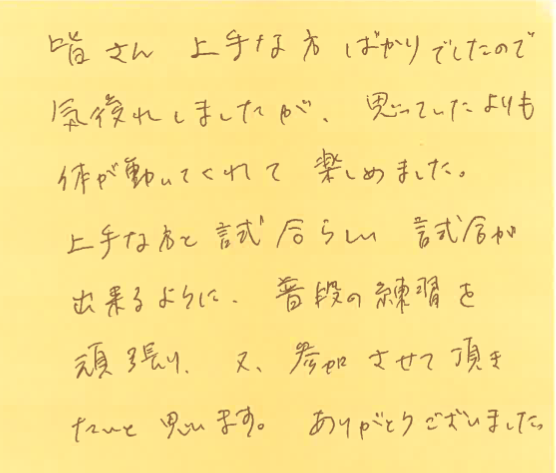 皆さん 上手な方 ばかりでしたので
気後れしましたが、思っていたよりも
体が動いてくれて 楽しめました。
上手な方と試合らしい 試合が
出来るように、普段の練習を
頑張り、又、参加させて頂き
たいと思います。ありがとうございました。